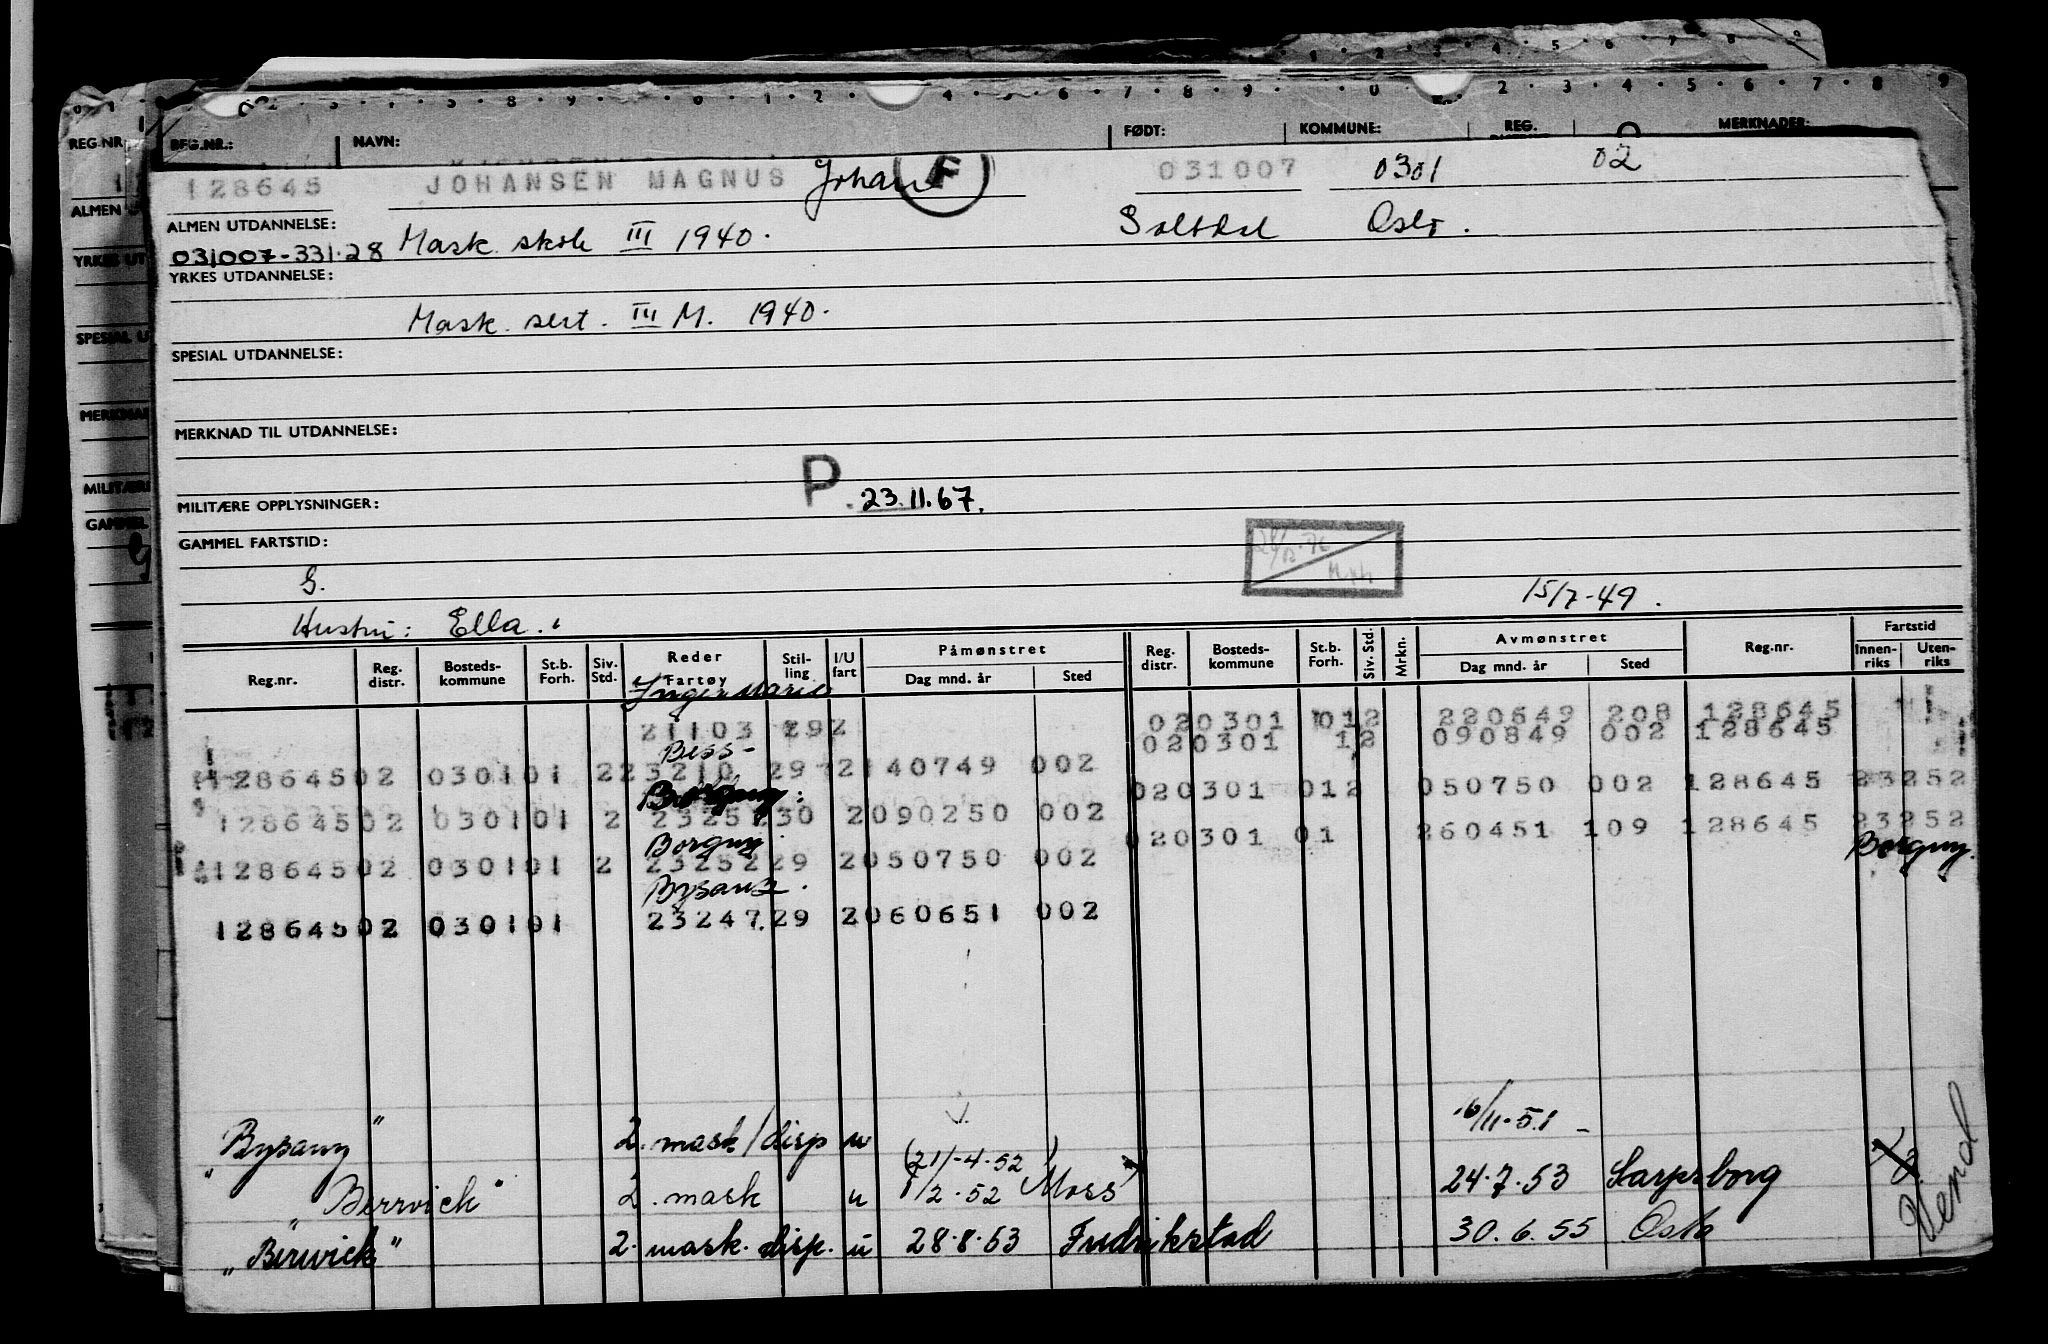 REG.NR.: NAVN: FØDT: KOMMUNE: REG. MERKNADER:
128645 JOHANSEN MAGNUS Johan F 031007 0301 02
ALMEN UTDANNELSE:
031007-331.28 Mask. skole III 1940. Saltdal Oslo.
YRKES UTDANNELSE:
Mask. sert. III M. 1940.
SPESIAL UTDANNELSE:
MERKNAD TIL UTDANNELSE:
MILITÆRE OPPLYSNINGER: P. 23.11.67.
GAMMEL FARTSTID:
G. 15/7-49.
Hustru: Ella.
Reg.nr. Reg. distr. Bosteds-kommune St.b. Forh. Siv. Std. Reder Fartøy Stil-ling I/U fart Påmønstret Dag mnd. år Sted Reg. distr. Bosteds-kommune St.b. Forh. Siv. Std. Mrkn. Avmønstret Dag mnd. år Sted Reg.nr. Fartstid Innen-riks Uten-riks
Inger Marie
21103 292 020301 012 220649 208 128645
Bess- 020301 12 090849 002 128645
128645 02 0301 01 2 23210 29 2 140749 002
Borgny: 020301 012 050750 002 128645 23252
128645 02 0301 01 2 23252 30 2 090250 002
Borgny 020301 01 260451 109 128645 23252
128645 02 0301 01 2 23252 29 2 050750 002 Borgny.
Bysanz.
128645 02 0301 01 23247. 29 2 060651 002
"Bysanz" 2. mask/disp u 16/11-51 -
(21/-4-52)
"Berrvich" 2. mask u 1/2-52 Moss 24.7.53 Sarpsborg
"Berwick" 2. mask. disp. u 28.8.53 Fredrikstad 30.6.55 Oslo
Vend